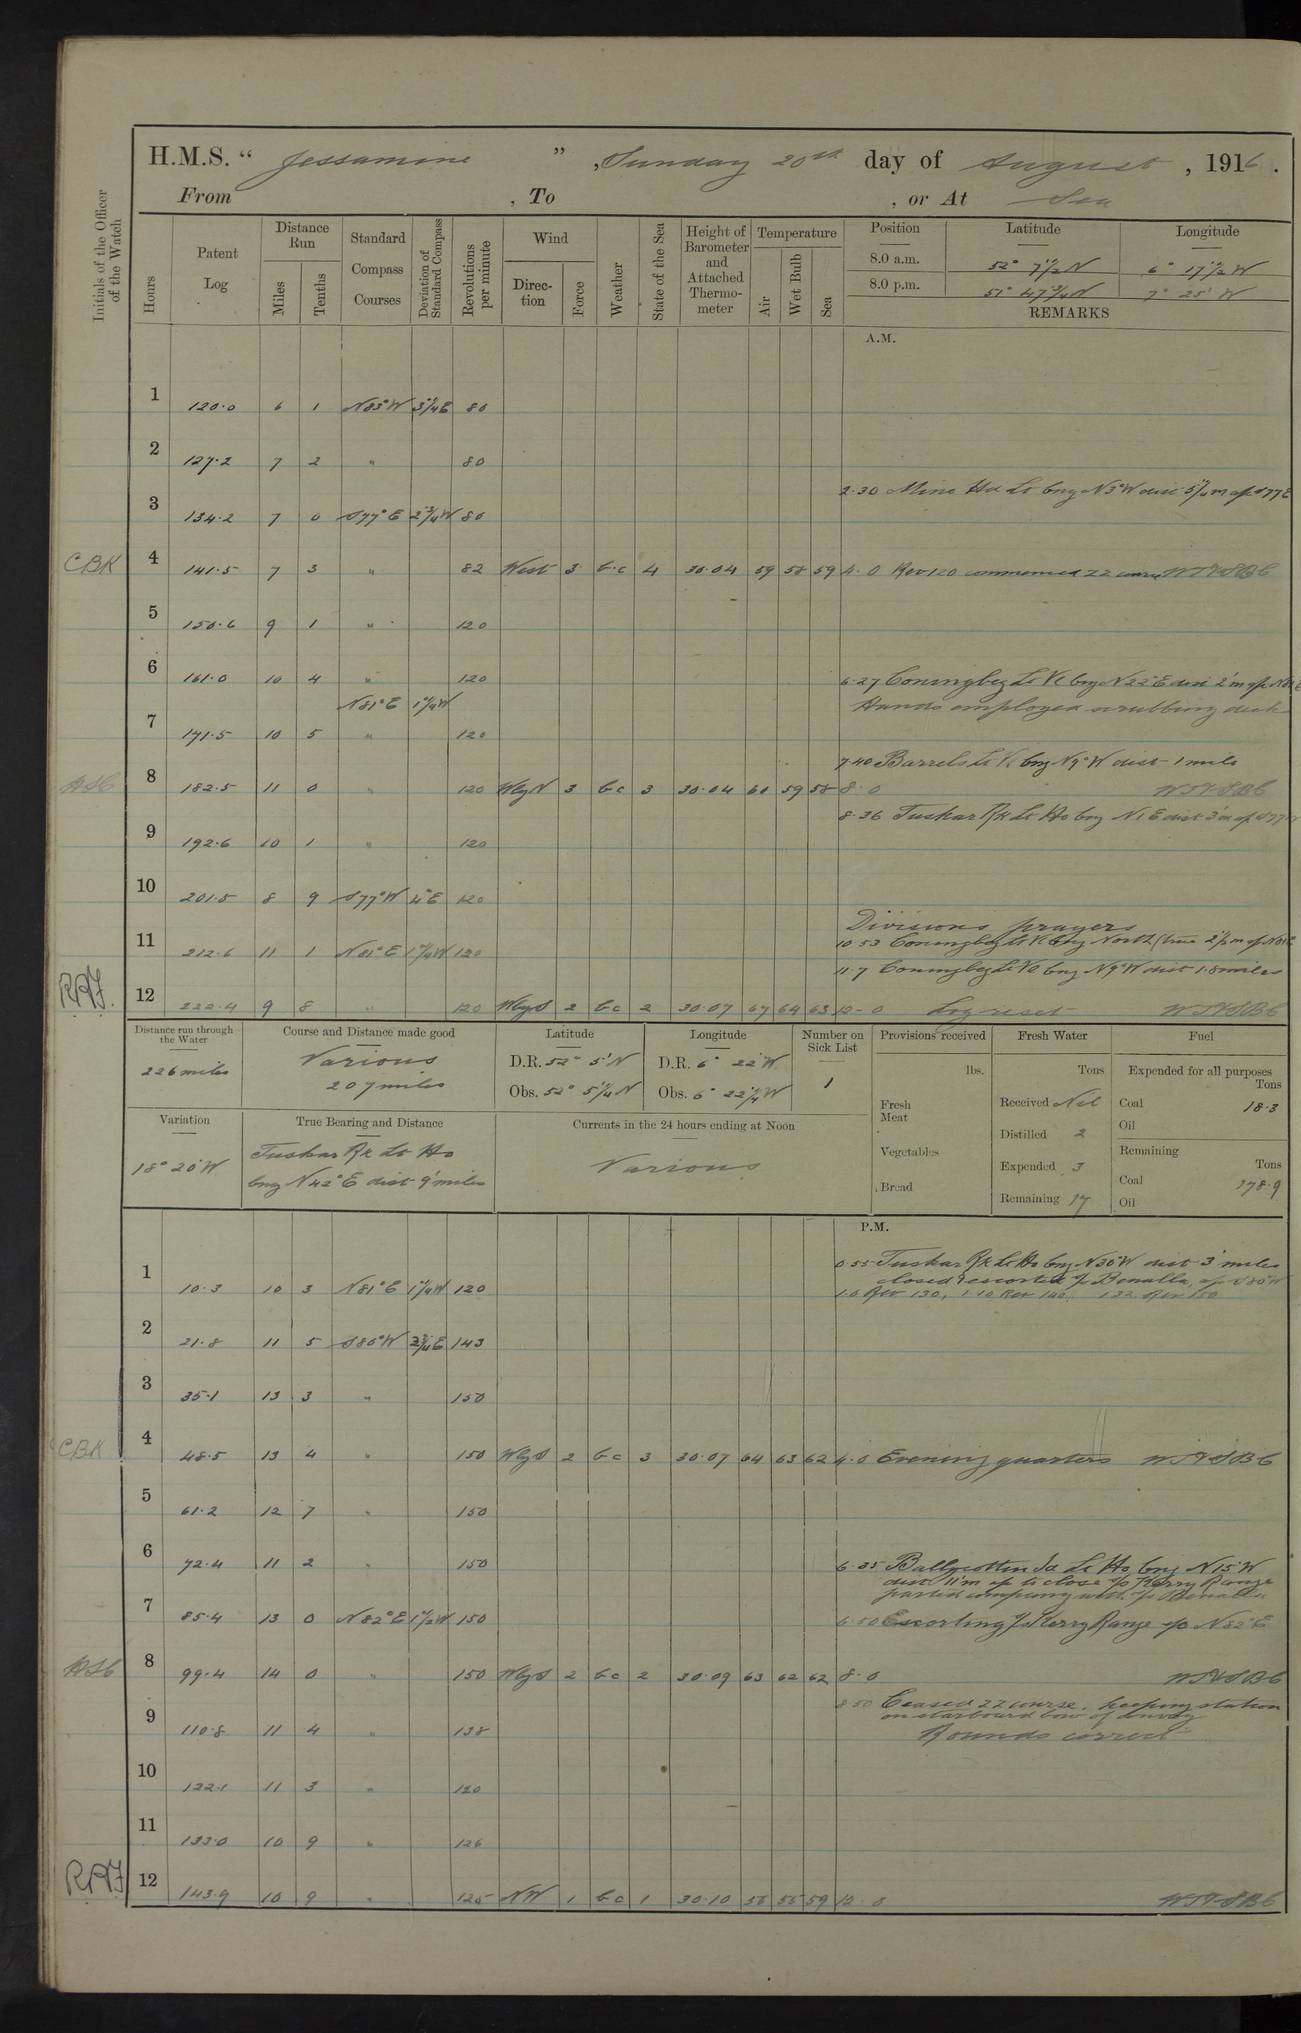 H.M.S. “ Jessamine ” , Sunday 20th day of August , 1916 .
From , To , or At Sea
Initials of the Officer of the Watch
Hours
Patent Log
Distance Run
Miles
Tenths
Standard Compass Courses
Deviation of Standard Compass
Revolutions per minute
Wind
Direction
Force
Weather
State of the Sea
Height of Barometer and Attached Thermometer
Temperature
Air
Wet Bulb
Sea
Position Latitude Longitude
8.0 a.m. 52° 7½ N 6° 17½ W
8.0 p.m. 51° 47¾ N 7° 25' W
REMARKS
A.M.
1 120.0 6 1 N83°W 3¼E 80
2 127.2 7 2 " 80
2.30 Mine Hd Lt brg N3°W dist
3 134.2 7 0 S77°E 2¾W 80
CBK 4 141.5 7 3 " 82 West 3 b.c 4 30.04 59 58 59 4.0 Rev 120 commenced ZZ course
5 150.6 9 1 " 120
6 161.0 10 4 " 120 6.27 Coningbeg Lt Vl brg N22°E dist 2'm a/c N81E
N81°E 1¼W Hands employed scrubbing deck
7 171.5 10 5 " 120
7.40 Barrels Lt Vl brg N9°W dist 1 mile
8 182.5 11 0 " 120 WbyN 3 bc 3 30.04 60 59 58 8.0
8.36 Tuskar Rk Lt Ho brg N1E dist 3'm a/c S77W
9 192.6 10 1 " 120
10 201.5 8 9 S77°W 4°E 120
Divisions prayers
11 212.6 11 1 N81°E 1¼W 120 10.53 Coningbeg Lt Vl brg North (true 2½m a/c N81E
11.7 Coningbeg Lt Vl brg N9°W dist 1.8 miles
RAJ. 12 222.4 9 8 " 120 WbyS 2 bc 2 30.07 67 64 63 12-0 Log reset
Distance run through the Water
226 miles
Course and Distance made good
Various
207 miles
Latitude
D.R. 52° 5'N
Obs. 52° 5¼N
Longitude
D.R. 6° 22'W
Obs. 6° 22¼W
Number on Sick List
1
Provisions received
lbs.
Fresh Meat
Vegetables
Bread
Fresh Water
Tons
Received Nil
Distilled 2
Expended 3
Remaining 17
Fuel
Expended for all purposes
Tons
Coal 18.3
Oil
Remaining
Tons
Coal 178.9
Oil
Variation
18° 20'W
True Bearing and Distance
Tuskar Rk Lt Ho
brg N42°E dist 9'miles
Currents in the 24 hours ending at Noon
Various
P.M.
0.55 Tuskar Rk Lt Ho brg N30°W dist 3' miles
closed & escorted s/s Benalla, a/c S80°W
1 10.3 10 3 N81°E 1¼W 120 1.0 Rev 130, 1.10 Rev 140, 1.32 Rev 150
2 21.8 11 5 S80°W 3¾E 143
3 35.1 13 3 " 150
CBK 4 48.5 13 4 " 150 WbyS 2 bc 3 30.07 64 63 62 4.0 Evening quarters
5 61.2 12 7 " 150
6 72.4 11 2 " 150 6.35 Ballycotton Id Lt Ho brg N15W
dist 11'm a/c to close s/s Kerry Range
parted company with s/s Benalla
7 85.4 13 0 N82°E 1½W 150 6.50 Escorting s/s Kerry Range s/c N82°E
8 99.4 14 0 " 150 WbyS 2 bc 2 30.09 63 62 62 8.0
8.50 Ceased ZZ course. keeping station
on starboard bow of convoy
9 110.8 11 4 " 138 Rounds correct
10 122.1 11 3 " 120
11 133.0 10 9 " 126
RAJ 12 143.9 10 9 " 125 NW 1 bc 1 30.10 59 12.0